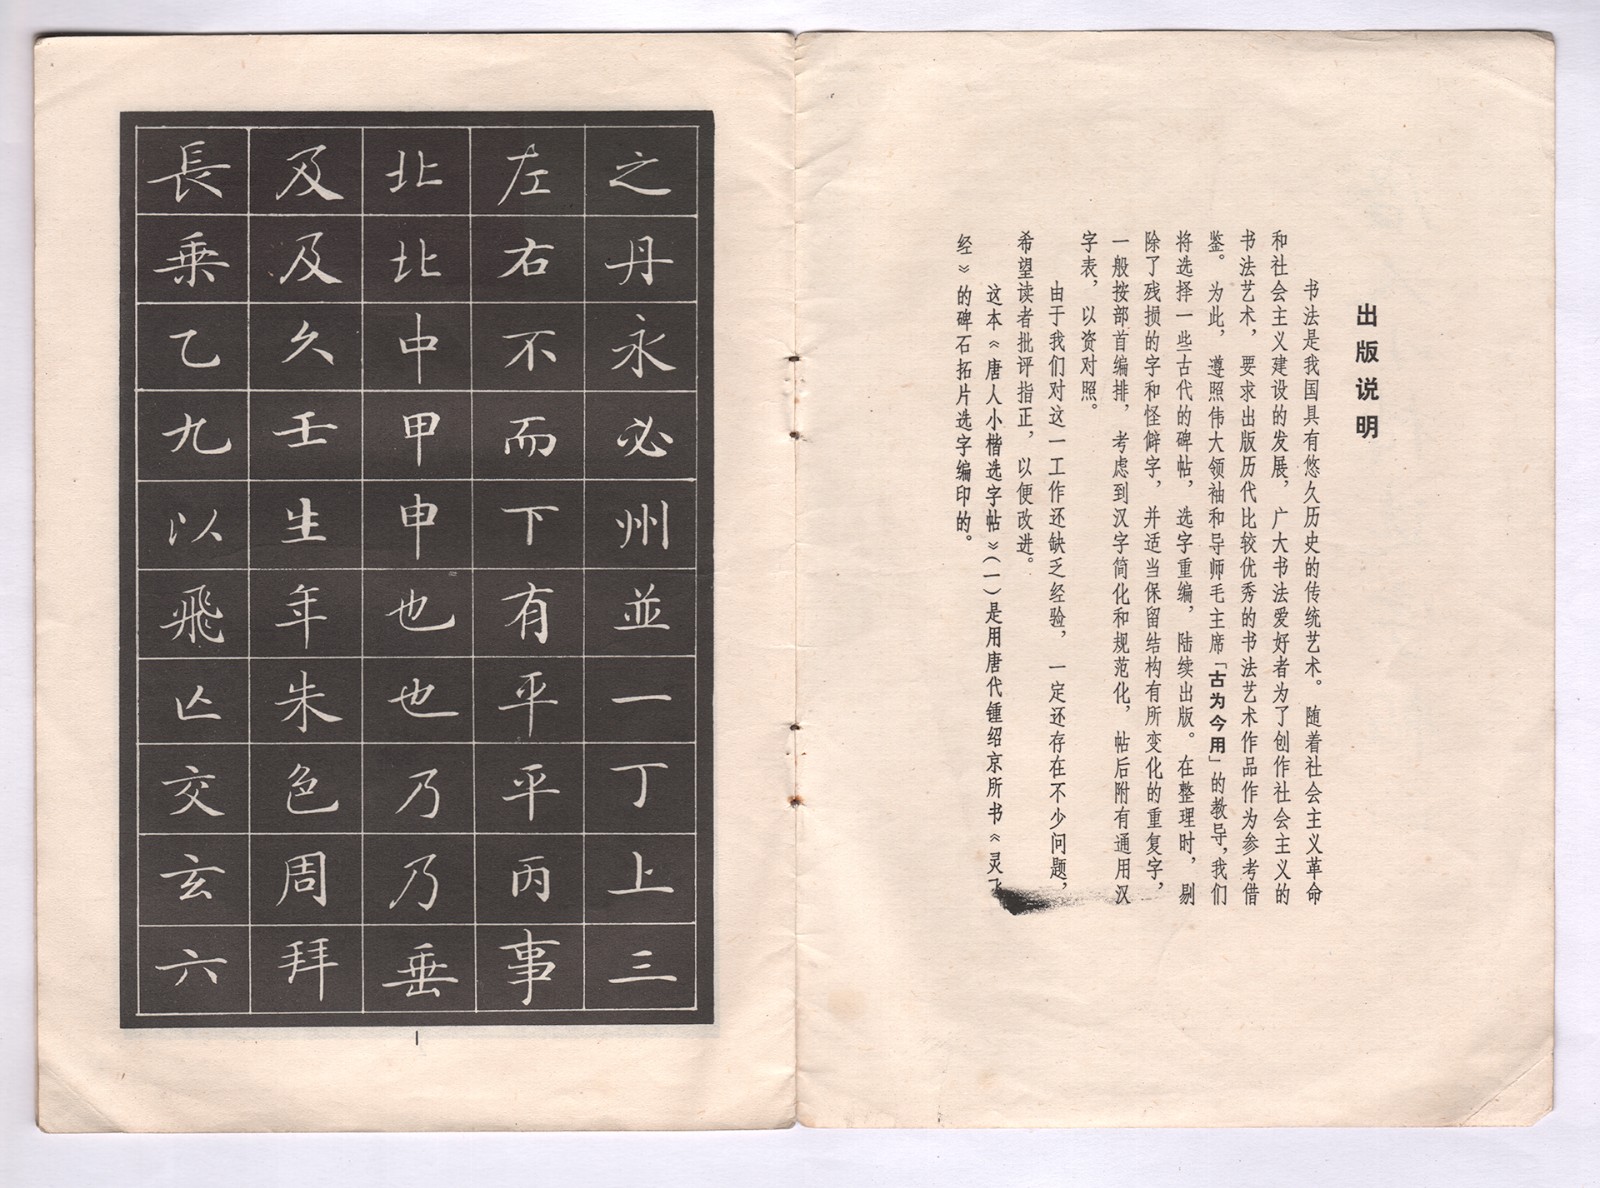 出版说明
书法是我国具有悠久历史的传统艺术。随着社会主义革命
和社会主义建设的发展，广大书法爱好者为了创作社会主义的
书法艺术，要求出版历代比较优秀的书法艺术作品作为参考借
鉴。为此，遵照伟大领袖和导师毛主席「古为今用」的教导，我们
将选择一些古代的碑帖，选字重编，陆续出版。在整理时，剔
除了残损的字和怪僻字，并适当保留结构有所变化的重复字，
一般按部首编排，考虑到汉字简化和规范化，帖后附有通用汉
字表，以资对照。
由于我们对这一工作还缺乏经验，一定还存在不少问题，
希望读者批评指正，以便改进。
这本《唐人小楷选字帖》(一)是用唐代锺绍京所书《灵飞
经》的碑石拓片选字编印的。
之丹永必州並一丁上三
左右不而下有平平丙事
北北中甲申也也乃乃垂
及及久壬生年朱色周拜
長乗乙九以飛亾交玄六
1